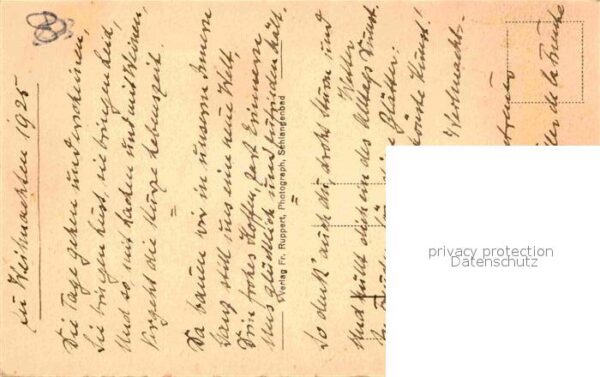 Zu Weihnachten 1925
Die Tage gehen und erscheinen,
Sie bringen Lust, sie bringen Leid,
Und so, mit Lachen und mit Weinen,
Vergeht die kurze Lebenszeit.
=
Da bauen wir in unserm Innern
Ganz still uns eine neue Welt,
Drin frohes Hoffen, zart Erinnern
Uns glücklich und zufrieden hält.
Verlag Fr. Ruppert, Photograph, Schlangenbad
=
So denk' auch du, droht Sturm und
Wetter
Und hüllt dich ein des Alltags Dunst,
Blätter:
Kunst!
Weihnacht-
de la
privacy protection
Datenschutz